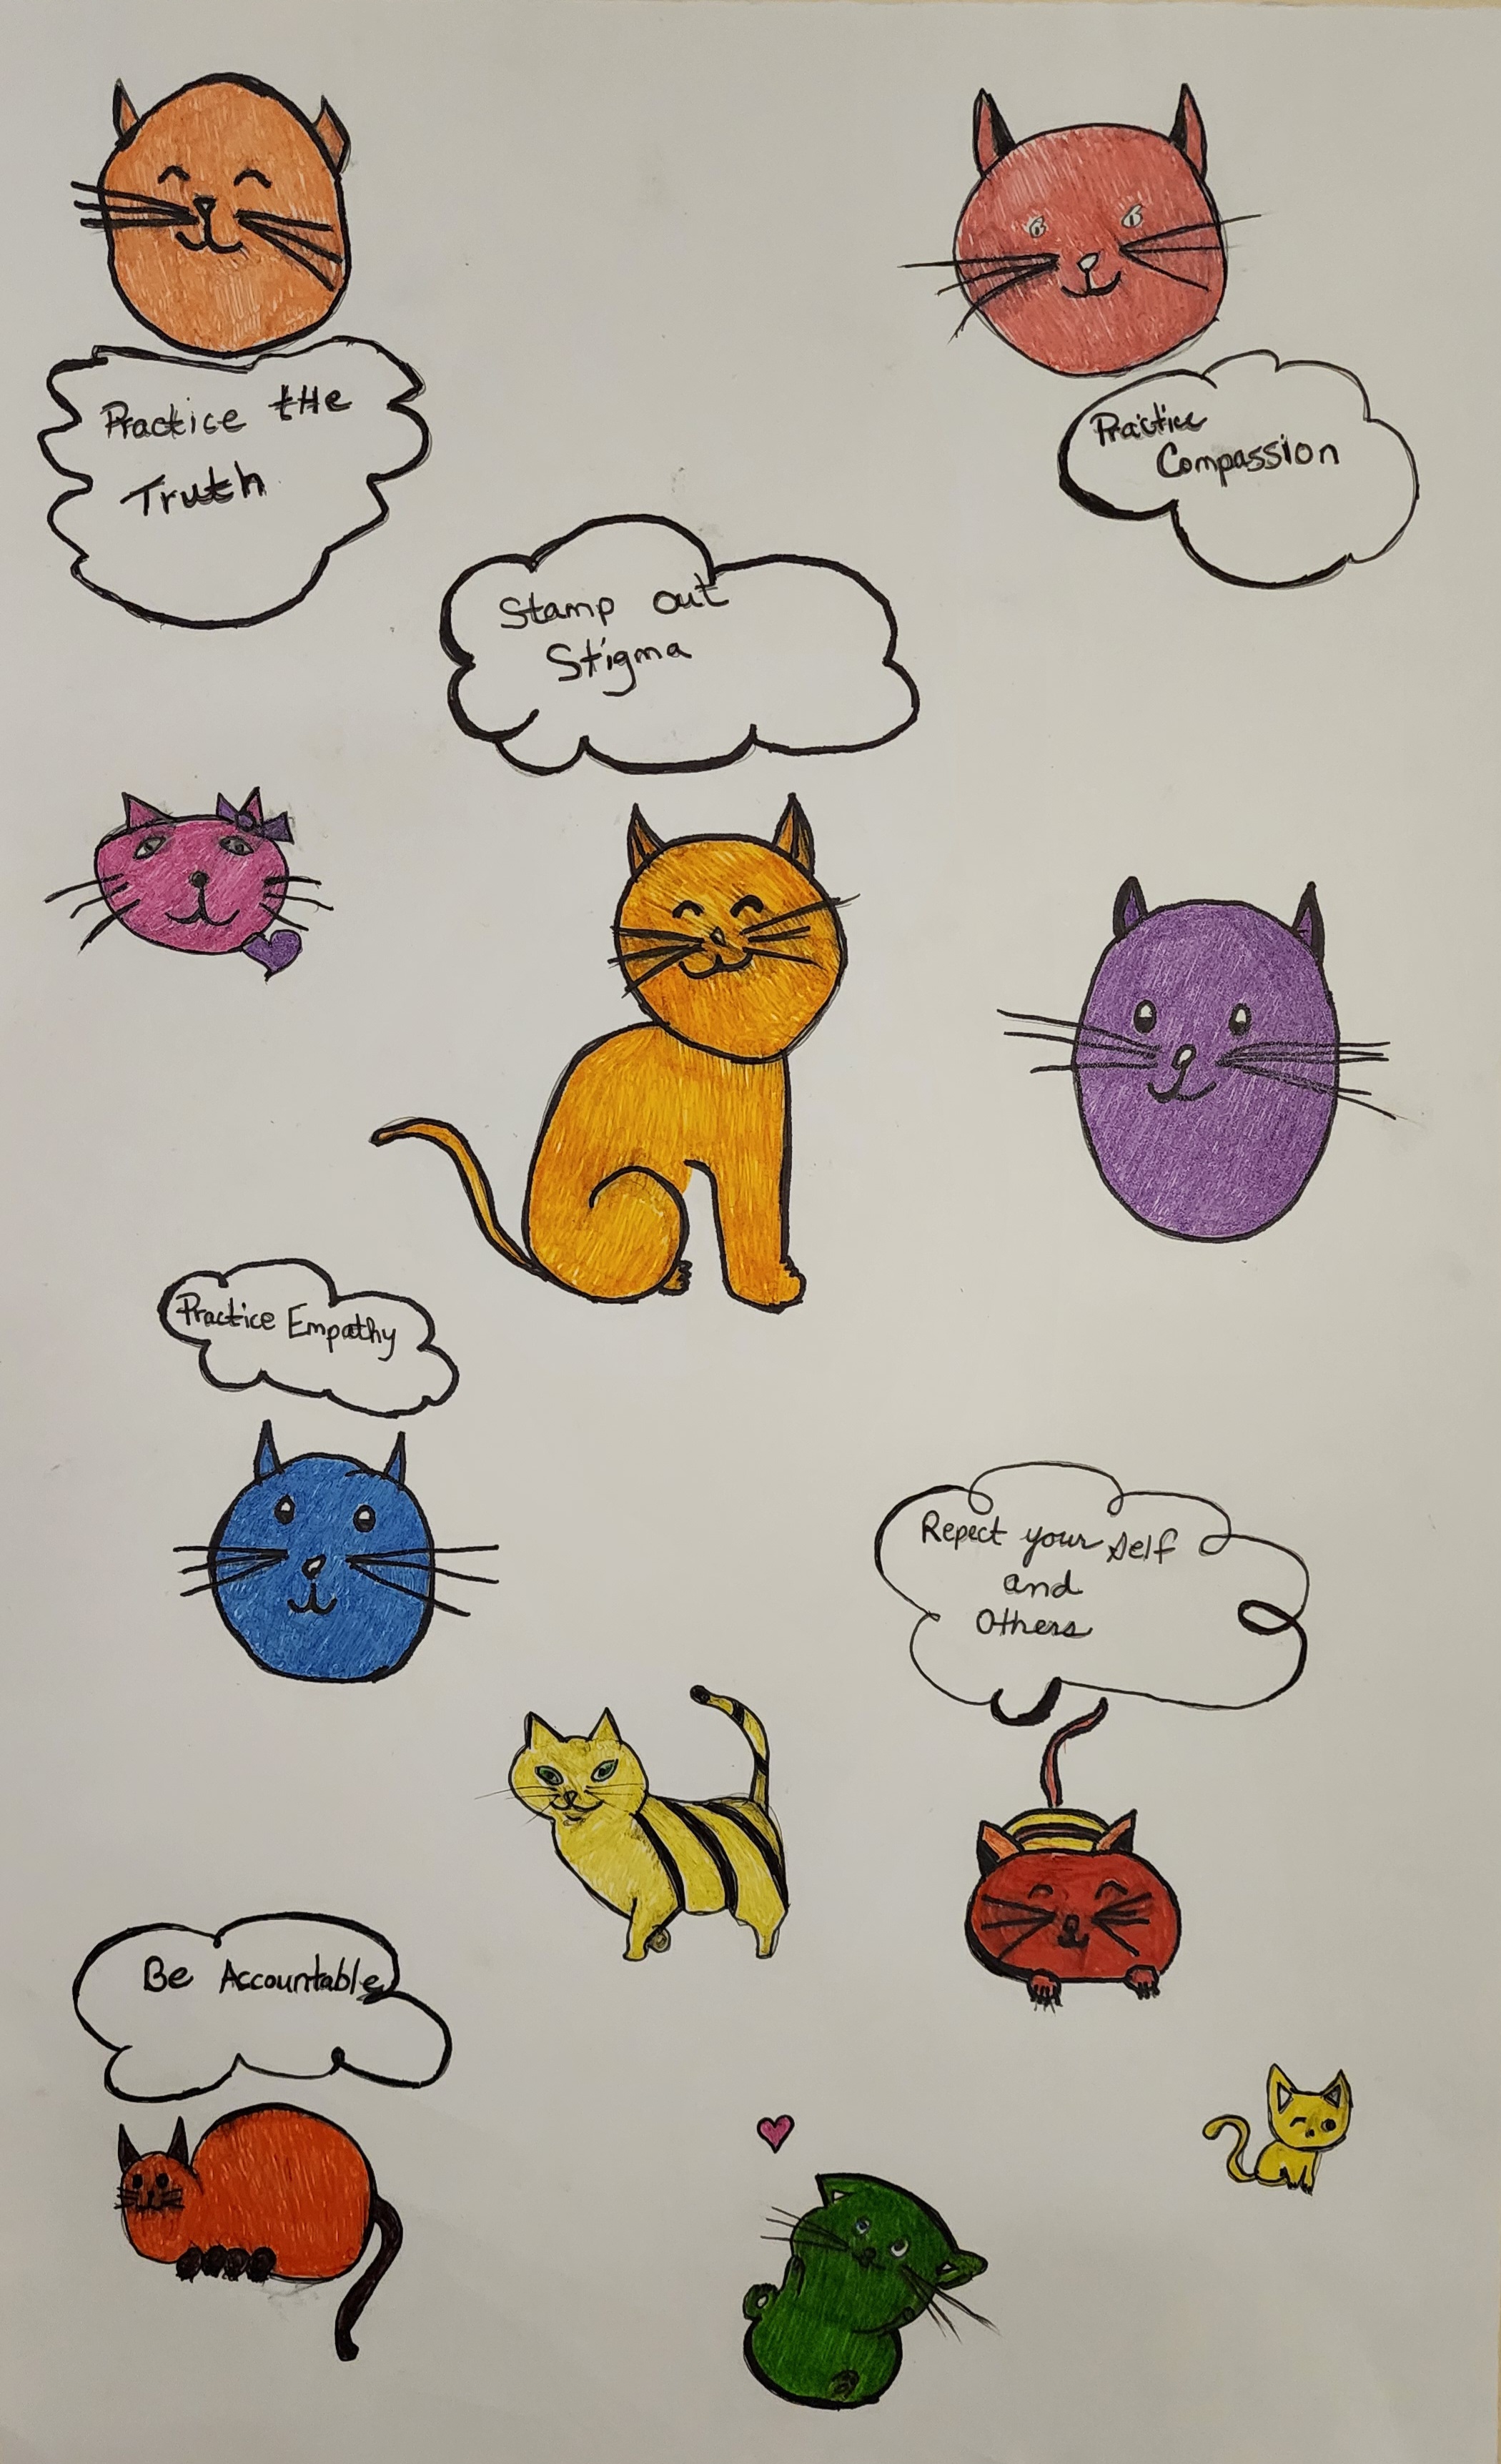 Practice tHe
Truth
Practice
Compassion
Stamp out
Stigma
Practice Empathy
Repect your self
and
Others
Be Accountable